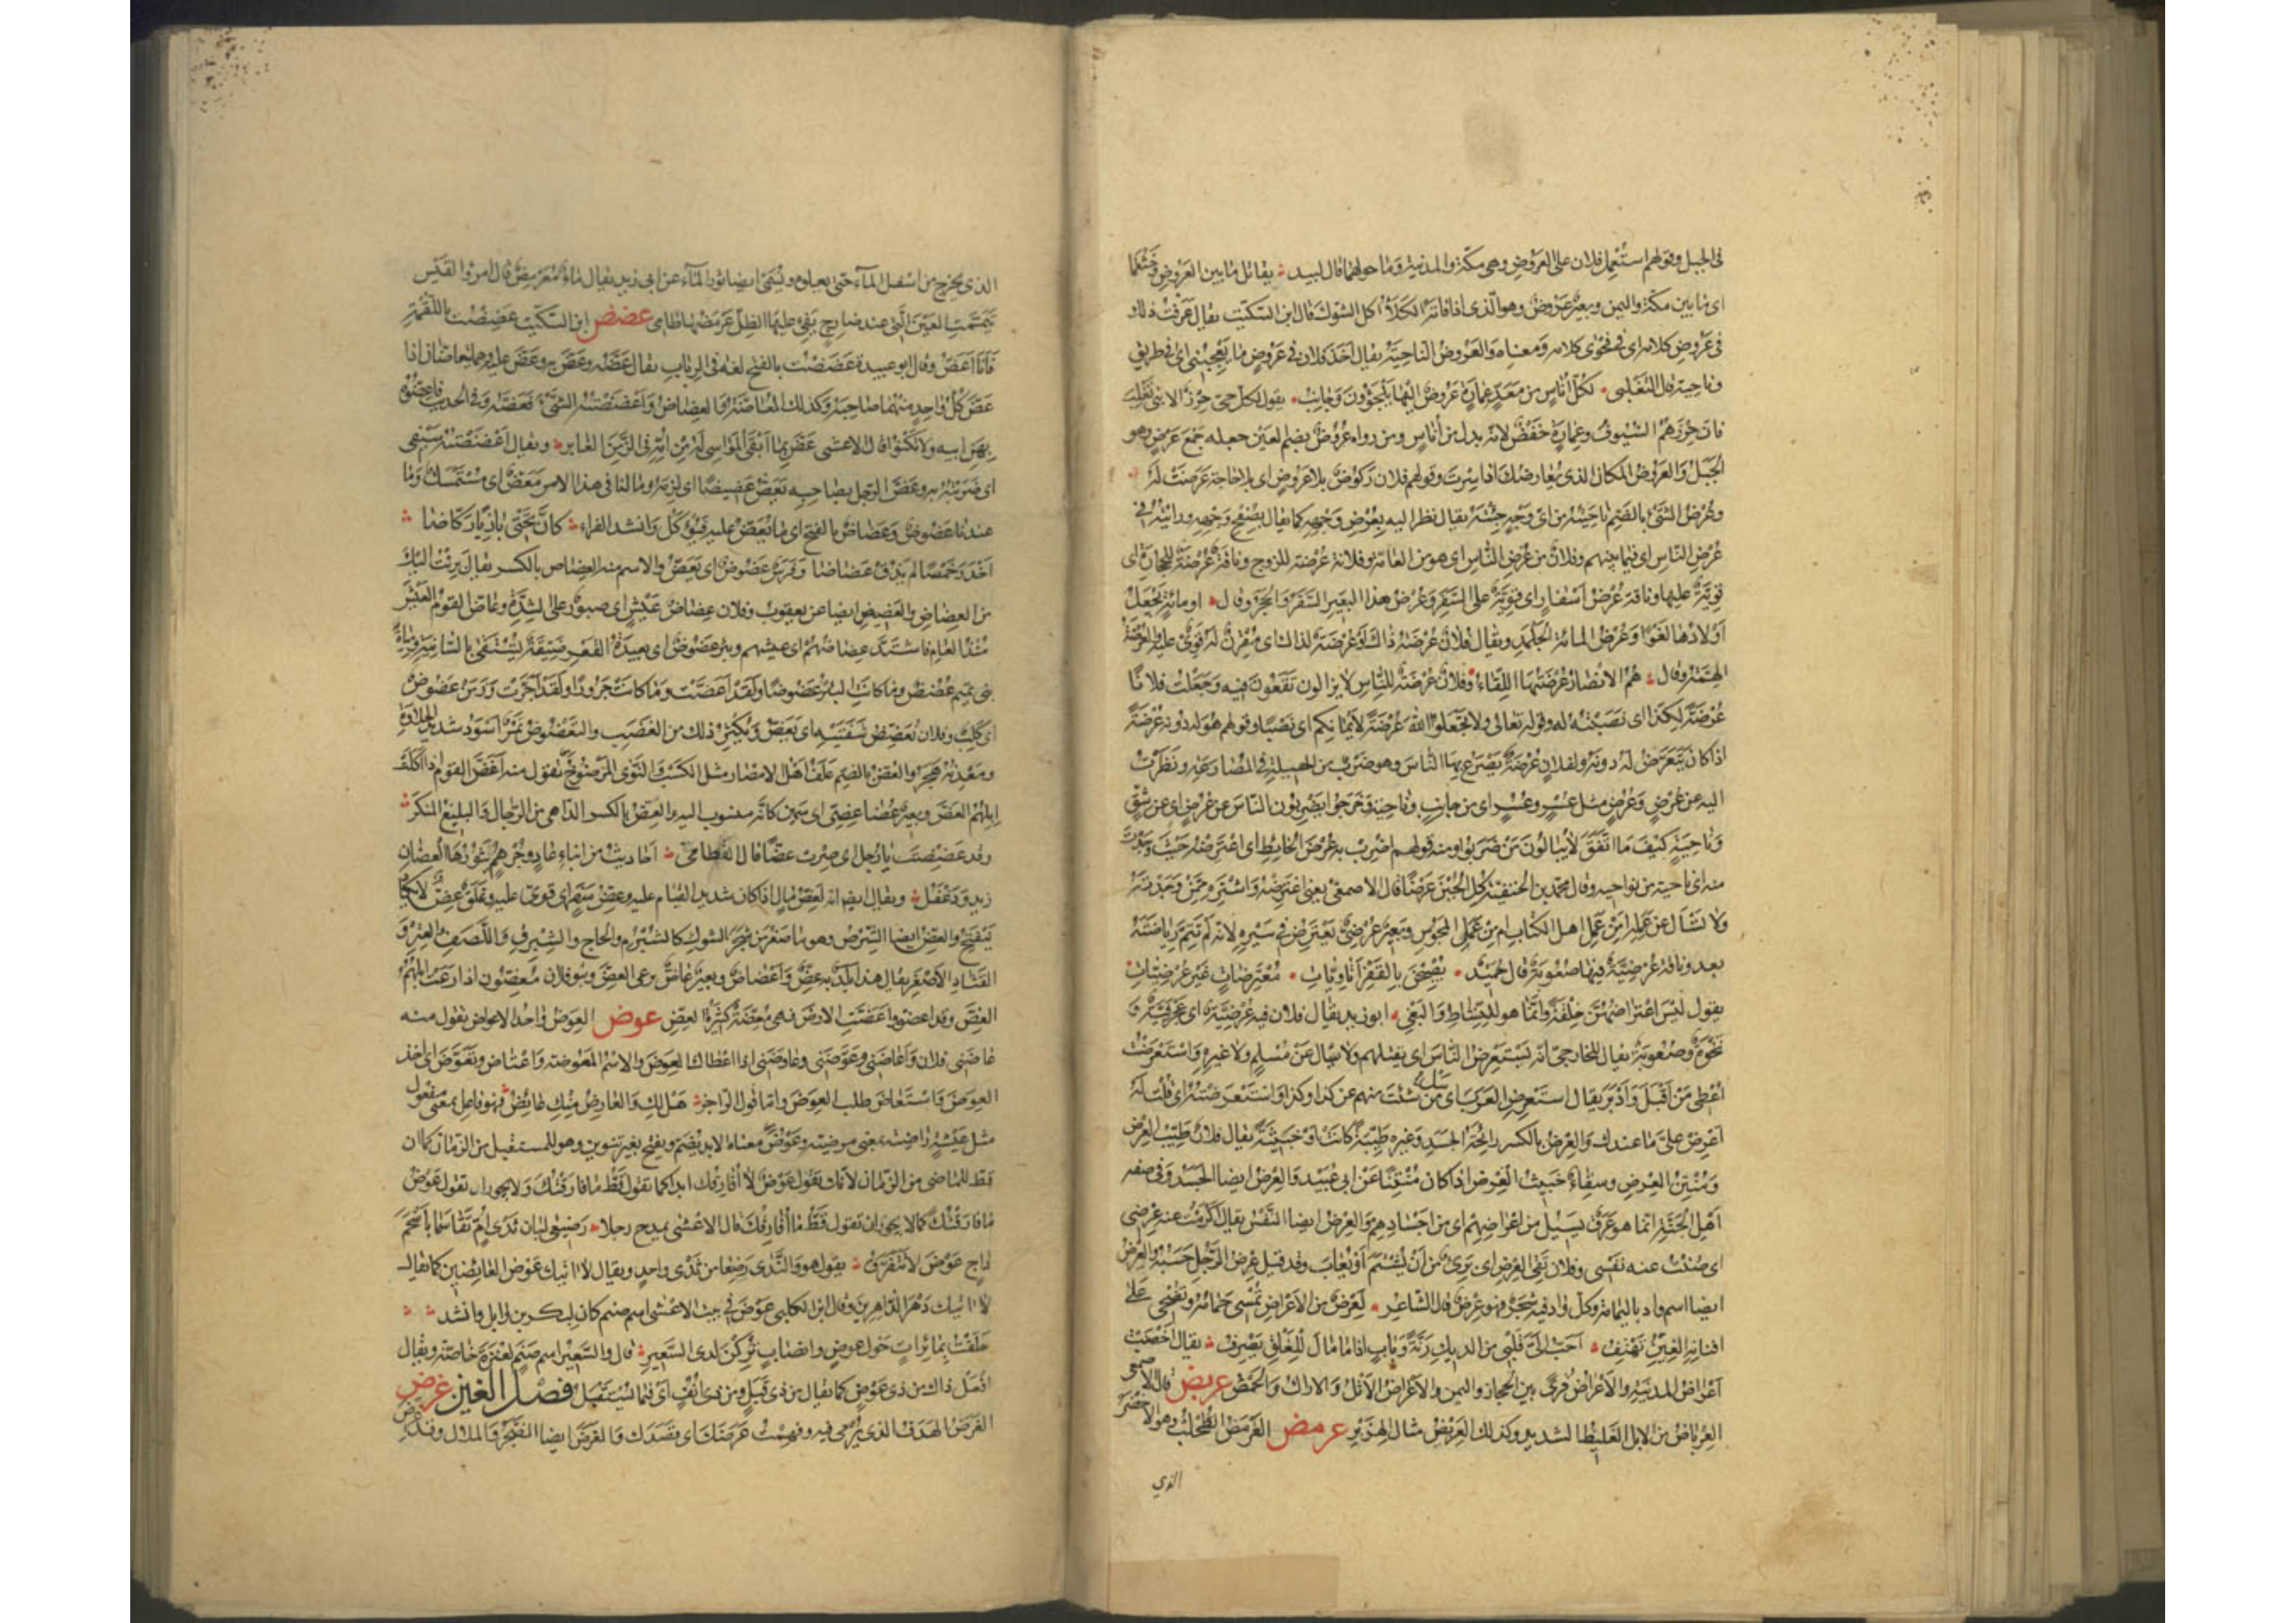 في الجبل وقولهم استُعمِل فلان على العَرُوض وهي مكة والمدينة وما حولهما قال لبيد يقاتل ما بين العَرُوض وخَثْعَما
اى ما بين مكة واليمن وبعيرٌ عَرُوضٌ وهو الذى اذا فاته الكَلَأُ اكل الشوك قال ابن السكيت يقال عَرَفتُ ذلك
فى عَرُوض كلامه اى فى فحوى كلامه ومعناه والعَرُوضُ الناحِيَة يقال اَخَذَ فلان فى عَرُوضٍ ما يُعْجِبُنى اى فى طريقٍ
وناحية قال التغلبى لكلّ اُناسٍ من مَعَدٍّ عِمارةٍ عَروضٌ اليها يَلْجَؤُونَ وَجانِبُ يقول لكل حىّ حِرْزٌ الا بنى تَغْلِبَ
فان حِرْزهم السُّيوفُ وعِمارةٍ خَفْضٌ لانه بدل من اُناسٍ ومن رواه عُرُوضٌ بضم العين جعله جَمْعَ عَرْضٍ وهو
الجَبَلُ والعَرُوضُ المكان الذى يُعارضك اذا سِرتَ وقولهم فلان رَكُوضٌ بلا عَرُوضٍ اى بلا حاجة عَرَضَتْ له
وعُرْضُ الشىءِ بالضم ناحِيَتُه من اىّ وَجْهٍ جِئْتَه يقال نظر اليه بعُرْضِ وَجْهِه كما يقال بصُفْحِ وَجْهِه ورايته فى
عُرْضِ الناس اى فيما بينهم وفلانٌ من عُرْضِ النّاس اى هو من العامّة وفلانة عُرْضَة للزوج وناقةٌ عُرْضَةٌ للحجارة اى
قوِيّةٌ عليها وناقة عُرْضُ اَسْفارٍ اى قوِيّةٌ على السّفَر وعُرْضُ هذا البعيرِ السَّفَرُ والحَجَرُ وقال او مائةٌ تُجْعَلُ
اَولادُها لَغْوًا وعُرْضُ المائة الجَلْمَدِ ويقال فلانٌ عُرْضَةُ ذاك او عُرْضَةٌ لذاك اى مُقْرِنٌ له قوِىٌّ عليه والعُرْضَةُ
الهِمّة وقال هُمُ الانصارُ عُرْضَتُها اللِّقاءُ وفلانٌ عُرْضَةٌ للناس لا يزالون يَقَعُونَ فيه وجَعَلتُ فلانًا
عُرْضَةً لكذا اى نَصَبْتُه له وقوله تعالى ولا تجعلوا اللهَ عُرْضَةً لِاَيْمانِكم اى نَصْبًا وقولهم هو له دونه عُرْضَةٌ
اذا كان يَتَعَرّضُ له دونه ولفلانٍ عُرْضَةٌ يَصْرَعُ بها الناس وهو ضَرْبٌ من الحيلة فى المُصارَعة ونظرتُ
اليه عن عُرْضٍ وعُرُضٍ مثل عُسْرٍ وعُسُرٍ اى من جانِبٍ وناحية وخَرَجُوا يَضْرِبُون النّاسَ عن عُرْضٍ اى عن شِقٍّ
وناحيةٍ كيفَ ما اتّفقَ لا يُبالُون مَن ضَرَبُوا ومنه قولهم اضْرِبْ به عُرْضَ الحائطِ اى اعْتَرِضْه حَيثُ وَجَدْتَ
منه اى ناحية من نواحيه وقال محمد بن الحنفية كُلِ الجُبْنَ عُرْضًا قال الاصمعىّ يعنى اعْتَرِضْه واشْتَرِه مِمَّنْ وَجَدْتَه
ولا تَسْأل عن عَمَلِه اَمِن عَمَلِ اهل الكتاب ام من عَمَلِ المَجُوس وبَعِيرٌ عُرْضِىٌّ يَعْتَرِضُ فى سَيْرِه لانه لم تَتِمّ رِياضَتُه
بعد وناقة عُرْضِيّةٌ فيها صُعُوبة قال حُمَيْد يُصْبِحْنَ بالقَفْرِ اَتاوِيّاتِ مُعْتَرِضاتٍ غَيرَ عُرْضِيّاتِ
يقول ليس اعتراضُهُنّ خِلْقَةً وانّما هو للنّشاط والبَغْى ابو زيد يقال فلان فيه عُرْضِيّة اى عَجْرَفيّةٌ و
نَخْوَةٌ وصُعُوبةٌ يقال للخارجىّ انّه يَسْتَعرِضُ النّاسَ اى يقتلهم ولا يسأل عَنْ مُسْلِمٍ ولا غيره واستعرَضْتُ
اُعْطِى مَن اَقْبَلَ واَدْبَرَ يقال استعرِضِ العَرَبَ اى سَلْ مَنْ شِئْتَ منهم عن كذا وكذا واستعرضتُه اى قلت له
اعْرِضْ علىّ ما عندك والعِرْضُ بالكسر رائحة الجسد وغيره طيّبَةً كانت او خبيثةً يقال فلانٌ طيّب العِرْض
ومُنْتِنُ العِرْضِ وسِقاءٌ خبيثُ العِرْضِ اذا كان مُنْتِنًا عن ابى عُبَيد والعِرْضُ ايضا الجَسَد وفى صفة
اَهْلِ الجَنّة انّما هو عَرَقٌ يَسِيلُ من اعراضِهم اى من اجسادهم والعِرْض ايضا النَّفْس يقال اكرمتُ عنه عِرْضى
اى صُنْتُ عنه نَفْسى وفلان نَقِىُّ العِرْض اى بَرِىءٌ من اَنْ يُشْتَمَ اَو يُعابَ وقد قيل عِرْضُ الرّجلِ حَسَبُه والعِرْض
ايضا اسم واد باليمامة وكلّ واد فيه شَجَرٌ فهو عِرْضٌ قال الشاعر لَعِرْضٌ من الاَعْراضِ تُمْسى حَمامُه وتُضْحِى على
افنانِه الغِينِ تَهْتِفُ اَحَبُّ الى قَلْبى من الديكِ رَنّةً وبابٍ اذا ما مالَ للغَلْقِ يَصْرِفُ يقال اَخْصَبَتْ
اَعْراضُ المدينة والاَعْراضُ قُرًى بين الحجاز واليمن والاَعْراضُ الاَثْلُ والاراك والحَمْضُ عربض قال الاصمعى
العِرْباضُ من الابل الغليظ الشديد وكذلك العِرَبْضُ مثال الهِزَبْرِ عرمض العَرْمَضُ الطُّحْلُبُ وهو الاَخْضَرُ
الذي
الذى يَخْرُج من اسْفل الماء حتى يعلوه ويُسَمّى ايضا ثور الماء عن ابى زيد يقال ماءٌ مُعَرْمِضٌ قال امرؤ القيس
تَيَمّمَتِ العَيْنَ الّتى عند ضارِجٍ يَفِىءُ عليها الظِلّ عَرْمَضُها طامى عضض ابن السكّيت عَضِضْتُ باللُّقْمَةِ
فانا اَعَضُّ وقال ابو عبيدة عَضَضْتُ بالفتح لغة فى الرباب يقال عَضّه وعَضّ به وعَضّ عليه وهما يتعاضّان اذا
عَضّ كُلُّ واحِدٍ منهما صاحِبَه وكذلك المُعاضّةُ والعِضاضُ واَعْضَضْتُه الشىءَ فعَضّه وفى الحديث فاَعِضّوه
بِهَنِ ابيه ولا تَكْنُوا قال الاعشى عَضَّ بما اَبْقى المَواسِى له من اُمّه فى الزّمَنِ الغابِرِ ويقال اَعْضَضْتُه سَيْفى
اى ضَرَبْتُه به وعَضّ الرّجل بصاحبه يَعَضُّ عَضيضًا اى لزمه وما لنا فى هذا الامر مَعَضٌّ اى مُسْتَمْسَكٌ وما
عندنا عَضُوضٌ وعَضاضٌ بالفتح اى ما يُعَضُّ عليه فيُؤْكَلُ وانشد الفراء كانّ تَحْتِى بازِيًا رَكّاضا
اَخْدَرَ خَمْسًا لم يَذُقْ عَضاضا وفَرَسٌ عَضُوضٌ اى يَعَضُّ والاسم منه العِضاض بالكسر يقال بَرِئْتُ اليك
من العِضاضِ والعَضِيضِ ايضا عن يعقوب وفلان عِضاضُ عَيْشٍ اى صبورٌ على الشِدّة وعاضّ القومُ العَيْشَ
مُنْذُ العامِ فاشتدّ عِضاضُهُم اى عيشهم وبئر عَضُوضٌ اى بعيدةُ القَعْرِ ضَيّقةٌ يُسْتَقَى بالسانية ومِياهُ
بنى تميم عُضُضٌ وما كانت البئرُ عَضُوضًا ولقد اَعَضّتْ وما كانت جَرُورًا ولقد اَجَرّتْ وزَمَنٌ عَضُوضٌ
اى كَلِبٌ وفلان يُعَضِّضُ شَفَتَيْه اى يَعَضّ ويُكثِرُ ذلك من الغَضَب والتّعْضُوضُ تَمْرٌ اَسْوَدُ شديد الحلاوة
ومَعْدِنُه هَجَرُ والعُضُّ بالضم عَلَفُ اهل الامصار مثل الكُسْبِ والنَّوَى المَرْضُوخِ تقول منه اَعَضّ القومُ اذا اكَلَتْ
اِبِلُهُمُ العُضّ وبعيرٌ عُضاضِىٌّ اى سَمين كانّه منسوب اليه والعِضُّ بالكسر الداهى من الرجال والبليغ المنكر
وقد عَضِضْتَ يا رجل اى صِرتَ عِضًّا قال القطامى اَحاديثُ من اَنْباءِ عادٍ وجُرْهُمٍ يُثَوِّرُها العِضّانِ
زيدٌ ودَغْفَلُ ويقال ايضا انه لعِضُّ مالٍ اذا كان شديد القيام عليه وعِضُّ سَفَرٍ اى قوىّ عليه وغَلَقٌ عِضٌّ لا يكاد
يَنْفَتِحُ والعِضّ ايضا الشِّرْسُ وهو ما صَغُرَ من شجر الشوك كالشُّبْرُم والحاج والشِّبْرِق واللَّصَفِ والعِتْرِ و
القَتادِ الاَصْغَرِ يقال هذا بلدٌ به عِضٌّ واَعْضاضٌ وبعيرٌ عاضٌّ يرعى العِضّ وبنو فلان مُعِضّون اذا رَعَتْ اِبِلُهُم
العِضّ وقد اعضّوا واَعَضّتِ الارض فهى مُعِضّةٌ كثيرةُ العِضّ عوض العِوَضُ واحدُ الاعواض يقول منه
عاضَنى فلان واَعاضَنى وعَوّضَنى وعاوَضَنى اذا اعطاك العِوَضَ والاسم المَعُوضة واعْتاضَ وتَعَوَّضَ اى اخذ
العِوَضَ واسْتَعاضَ طلب العِوَضَ وامّا قول الراجز هَلْ لكِ والعارِضُ مِنْكِ عائِضُ فهو فاعِل بمعنى مفعول
مثل عِيشةٍ راضية بمعنى مرضيّة وعَوْضُ معناه الابد يُضَمّ ويُفتح بغير تنوين وهو للمستقبل من الزمان كما ان
قَطُّ للماضى من الزمان لانّك تقول عَوْضُ لا اُفارِقُك ابدا كما تقول قَطُّ ما فارَقْتُك ولا يجوز ان تقول عَوْضُ
ما فارَقْتُك كما لا يجوز ان تقول قَطُّ ما اُفارِقُك قال الاعشى يمدح رجلا رَضِيعَى لِبانٍ ثَدْىَ اُمٍّ تَقاسَما باَسْحَمَ
داجٍ عَوْضُ لا نَتَفَرّقُ يقول هو والنّدى رَضَعا من ثَدْىٍ واحدٍ ويقال لا آتيك عَوْضَ العائضين كما يقال
لا آتيك دَهْرَ الداهرين وقال ابن الكلبى عَوْضُ فى بيت الاعشى اسم صنم كان لبكر بن وايل وانشد
حَلَفْتُ بمائراتٍ حَوْلَ عَوْضٍ وانصابٍ تُرِكْنَ لدى السَّعِيرِ قال والسَّعير اسم صَنَمٍ لعَنَزَةَ خاصّة ويقال
افْعَلْ ذاك من ذى عَوْضٍ كما يقال من ذى قَبَلٍ ومن ذى اُنُفٍ اى فيما يُسْتَقْبَلُ فصل الغين غرض
الغَرَضُ الهَدَفُ الذى يُرمى فيه وفهِمْتُ غَرَضَك اى قَصْدَك والغَرَضُ ايضا الضَّجَرُ والملال وقد غَرِضَ